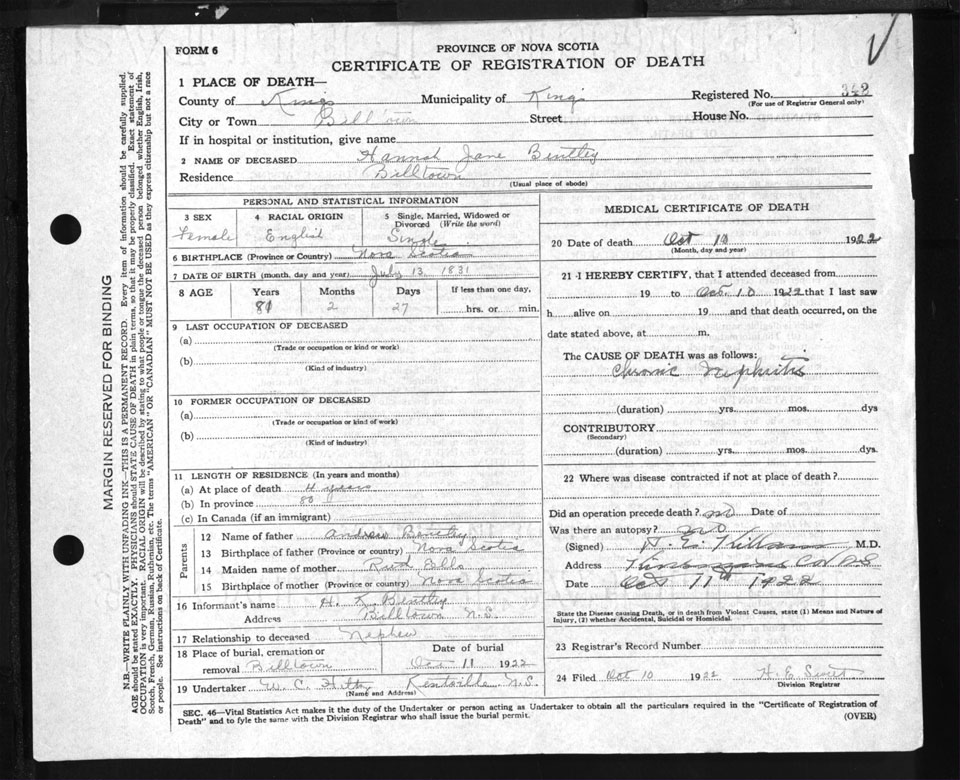 FORM 6
PROVINCE OF NOVA SCOTIA
CERTIFICATE OF REGISTRATION OF DEATH
1 PLACE OF DEATH—
County of Kings Municipality of Kings Registered No. 342
(For use of Registrar General only)
City or Town Billtown Street House No.
If in hospital or institution, give name
2 NAME OF DECEASED Hannah Jane Bentley
Residence Billtown
(Usual place of abode)
PERSONAL AND STATISTICAL INFORMATION
3 SEX 4 RACIAL ORIGIN 5 Single, Married, Widowed or Divorced (Write the word)
Female English Single
6 BIRTHPLACE (Province or Country) Nova Scotia
7 DATE OF BIRTH (month, day and year) July 13, 1831
8 AGE Years Months Days If less than one day,
81 2 27 hrs. or min.
9 LAST OCCUPATION OF DECEASED
(a)
(Trade or occupation or kind or work)
(b)
(Kind of industry)
10 FORMER OCCUPATION OF DECEASED
(a)
(Trade or occupation or kind of work)
(b)
(Kind of industry)
11 LENGTH OF RESIDENCE (In years and months)
(a) At place of death 4 years
(b) In province 80
(c) In Canada (if an immigrant)
Parents
12 Name of father Andrew Bentley
13 Birthplace of father (Province or country) Nova Scotia
14 Maiden name of mother Eells
15 Birthplace of mother (Province or country) Nova Scotia
16 Informant's name H. K. Bentley
Address Billtown N.S.
17 Relationship to deceased Nephew
18 Place of burial, cremation or removal Billtown
Date of burial
11 1922
19 Undertaker W. C. Kentville N.S.
(Name and Address)
MEDICAL CERTIFICATE OF DEATH
20 Date of death Oct 10 1922
(Month, day and year)
21 I HEREBY CERTIFY, that I attended deceased from
19 to Oct. 10 1922 that I last saw
h alive on 19 and that death occurred, on the
date stated above, at m.
The CAUSE OF DEATH was as follows:
Chronic Nephritis
(duration) yrs. mos. dys
CONTRIBUTORY
(Secondary)
(duration) yrs. mos. dys.
22 Where was disease contracted if not at place of death?
Did an operation precede death? no Date of
Was there an autopsy? no
(Signed) Killam M.D.
Address
Date Oct 11th 1922
State the Disease causing Death, or in death from Violent Causes, state (1) Means and Nature of
Injury, (2) whether Accidental, Suicidal or Homicidal.
23 Registrar's Record Number
24 Filed Oct 10 1922 H E
Division Registrar
SEC. 46—Vital Statistics Act makes it the duty of the Undertaker or person acting as Undertaker to obtain all the particulars required in the "Certificate of Registration of
Death" and to fyle the same with the Division Registrar who shall issue the burial permit.
(OVER)
MARGIN RESERVED FOR BINDING
N.B.—WRITE PLAINLY WITH UNFADING INK—THIS IS A PERMANENT RECORD. Every item of information should be carefully supplied.
AGE should be stated EXACTLY. PHYSICIANS should STATE CAUSE OF DEATH in plain terms, so that it may be properly classified. Exact statement of
OCCUPATION is very important. RACIAL ORIGIN will be described by stating to what people or tongue the deceased person belonged whether English, Irish,
Scotch, French, German, Russian, Ruthenian, etc. The terms "AMERICAN" OR "CANADIAN" MUST NOT BE USED as they express citizenship but not a race
or people. See instructions on back of Certificate.